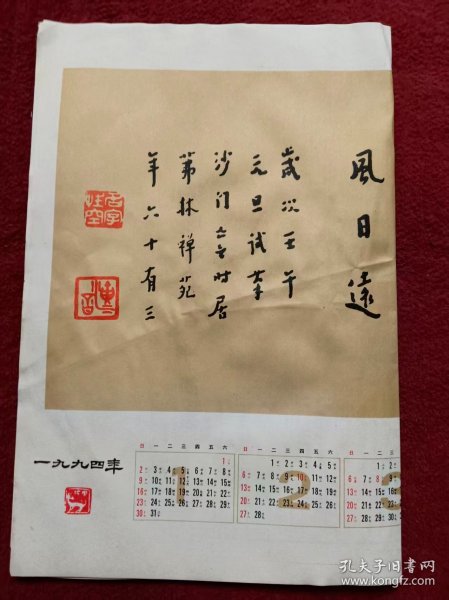 風日遠
歲次壬午
元旦試筆
沙门亡言时居
茀林禅苑
年六十有三
名字性空
一九九四年
日 一 二 三 四 五 六
1
2 3 4 5 6 7 8
9 10 11 12 13 14 15
16 17 18 19 20 21 22
23 24 25 26 27 28 29
30 31
日 一 二 三 四 五 六
1 2 3 4 5
6 7 8 9 10 11 12
13 14 15 16 17 18 19
20 21 22 23 24 25 26
27 28
日 一 二 三
1 2
6 7 8 9
13 14 15 16
20 21 22 23
27 28 29 30
孔夫子旧书网
www.kongfz.com